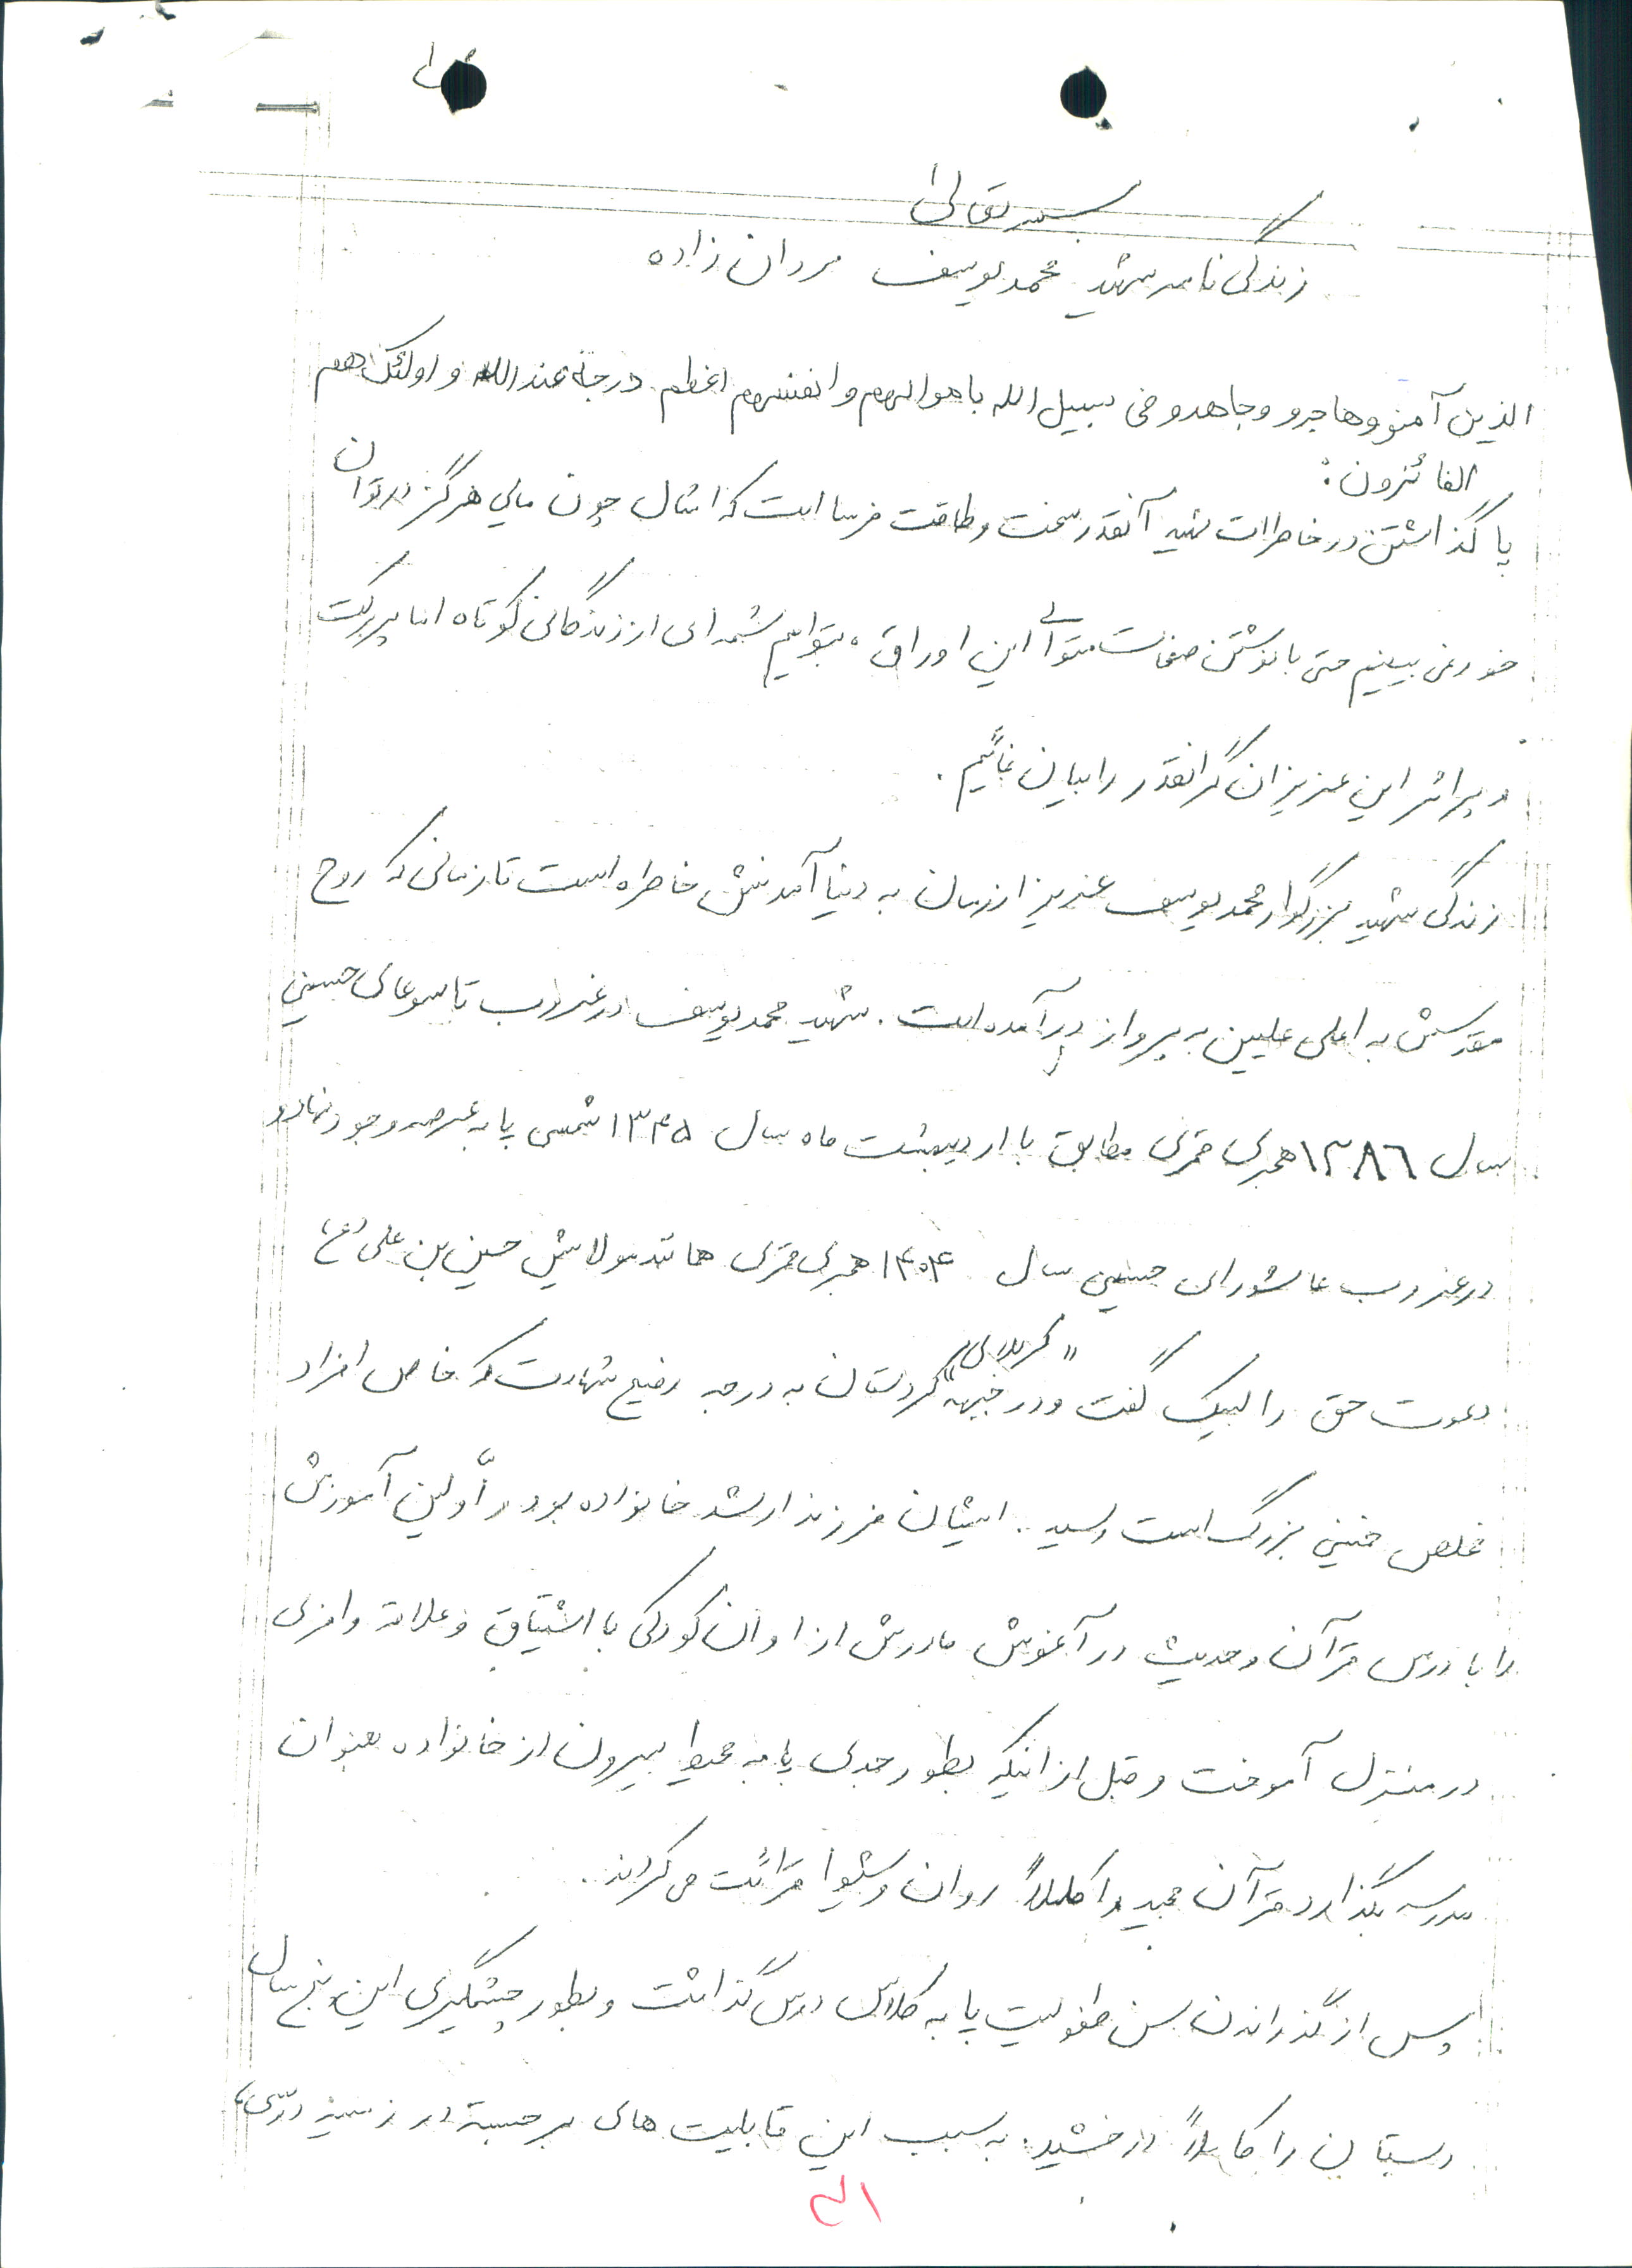 بسمه تعالی
زندگی نامه شهید محمد یوسف مردان زاده
الذین آمنو وهاجرو وجاهدو فی سبیل الله باموالهم وانفسهم اعظم درجة عندالله و اولئک هم
الفائزون:
پا گذاشتن در خاطرات شهید آنقدر سخت و طاقت فرسا است که امثال چون مایی هرگز در توان
خود نمی بینیم حتی با نوشتن صفحات متوالی این اوراق، بتوایم شمه ای از زندگانی کوتاه اما پر برکت
و پر اثر این عزیزان گرانقدر را بیان نمائیم.
زندگی شهید بزرگوار محمد یوسف عزیز از زمان به دنیا آمدنش خاطره است تا زمانی که روح
مقدسش به اعلی علیین به پرواز در آمده است. شهید محمد یوسف در غروب تاسوعای حسینی
سال ۱۳۸۶ هجری قمری مطابق با اردیبهشت ماه سال ۱۳۴۵ شمسی پا به عرصه وجود نهاد و
در غروب عاشورای حسینی سال ۱۴۰۴ هجری قمری همانند مولایش حسین بن علی (ع)
دعوت حق را لبیک گفت و در جبهه "کربلای" کردستان به درجه رفیع شهادت که خاص افراد
مخلص خمینی بزرگ است رسید. ایشان فرزند ارشد خانواده بود و اّولین آموزش
را با درس قرآن و حدیث در آغوش مادرش از اوان کودکی با اشتیاق و علاقه وافری
در منزل آموخت و قبل از اینکه بطور جدی پا به محیط بیرون از خانواده بعنوان
مدرسه بگذارد قرآن مجید را کاملاً روان و شیوا قرائت می کردند.
پس از گذراندن سن طفولیت پا به کلاس درس گذاشت و بطور چشمگیری این پنج سال
دبستان را کاملاً درخشید. به سبب این قابلیت های برجسته در زمینه درسی،